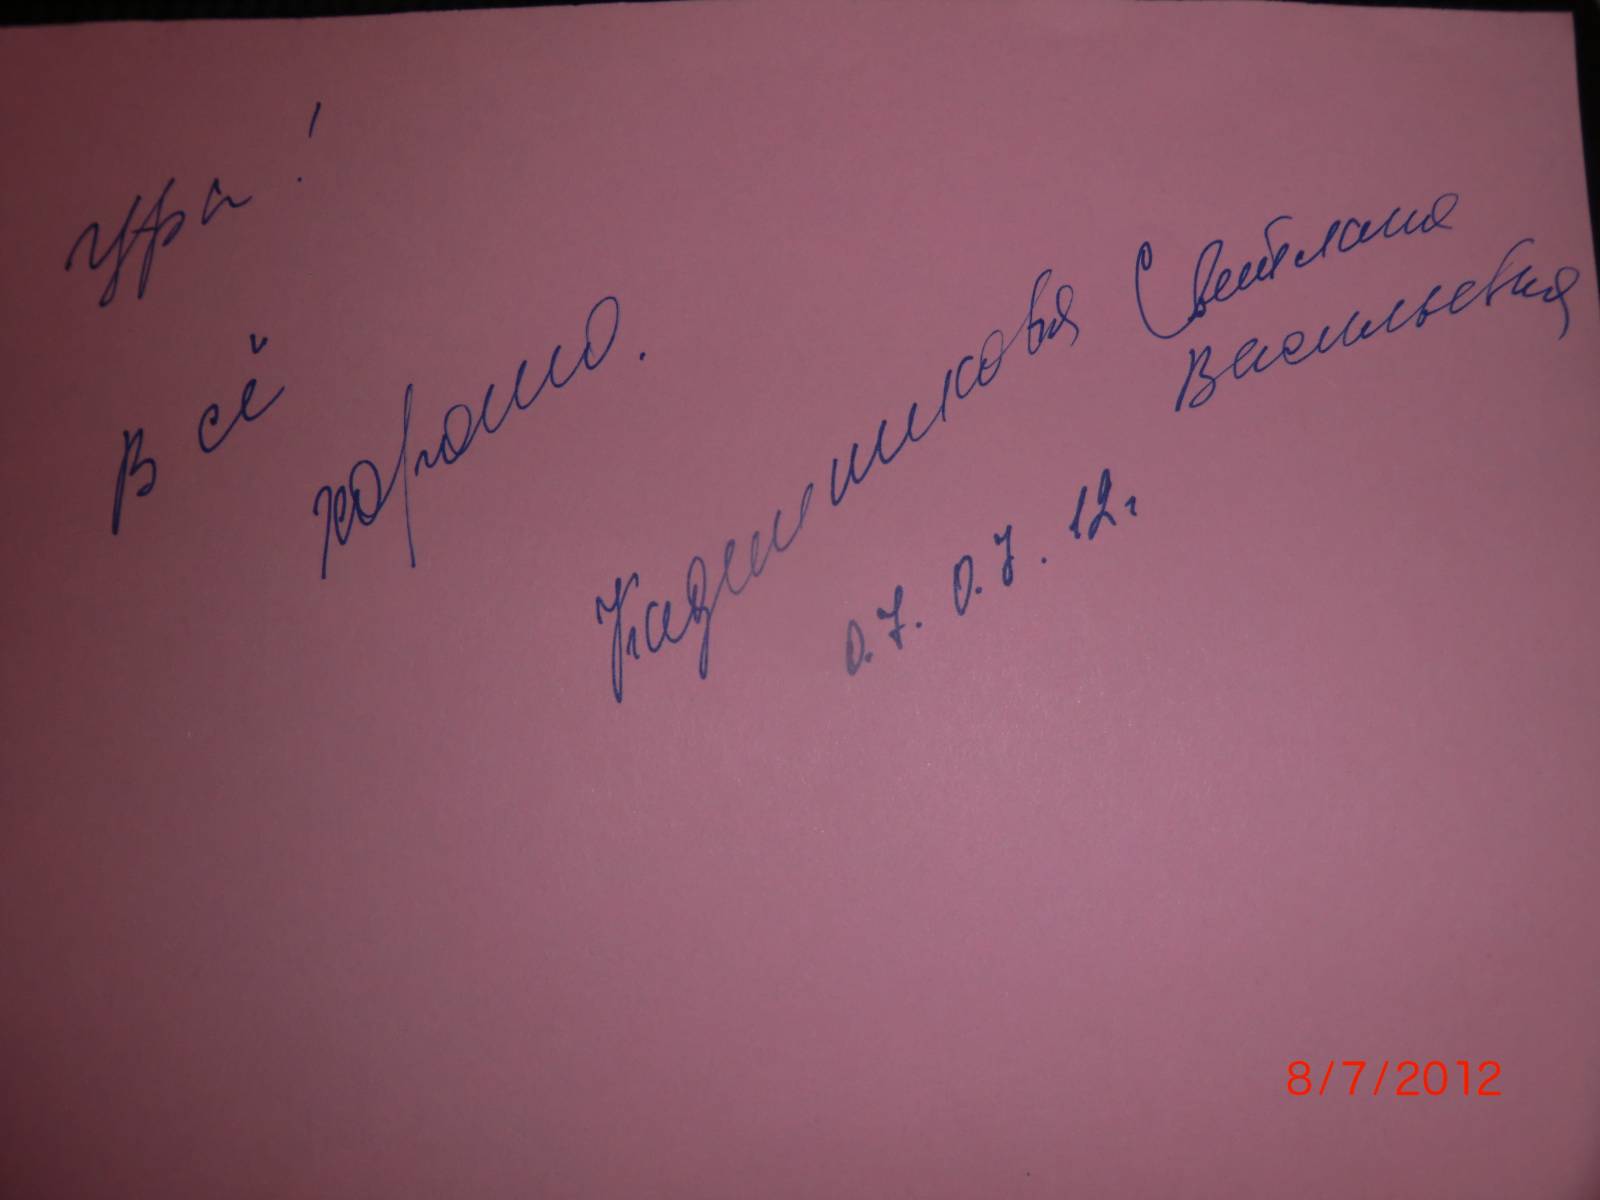 Ура!
Всё
хорошо.
Светлана
Васильевна
07.07.12г
8/7/2012